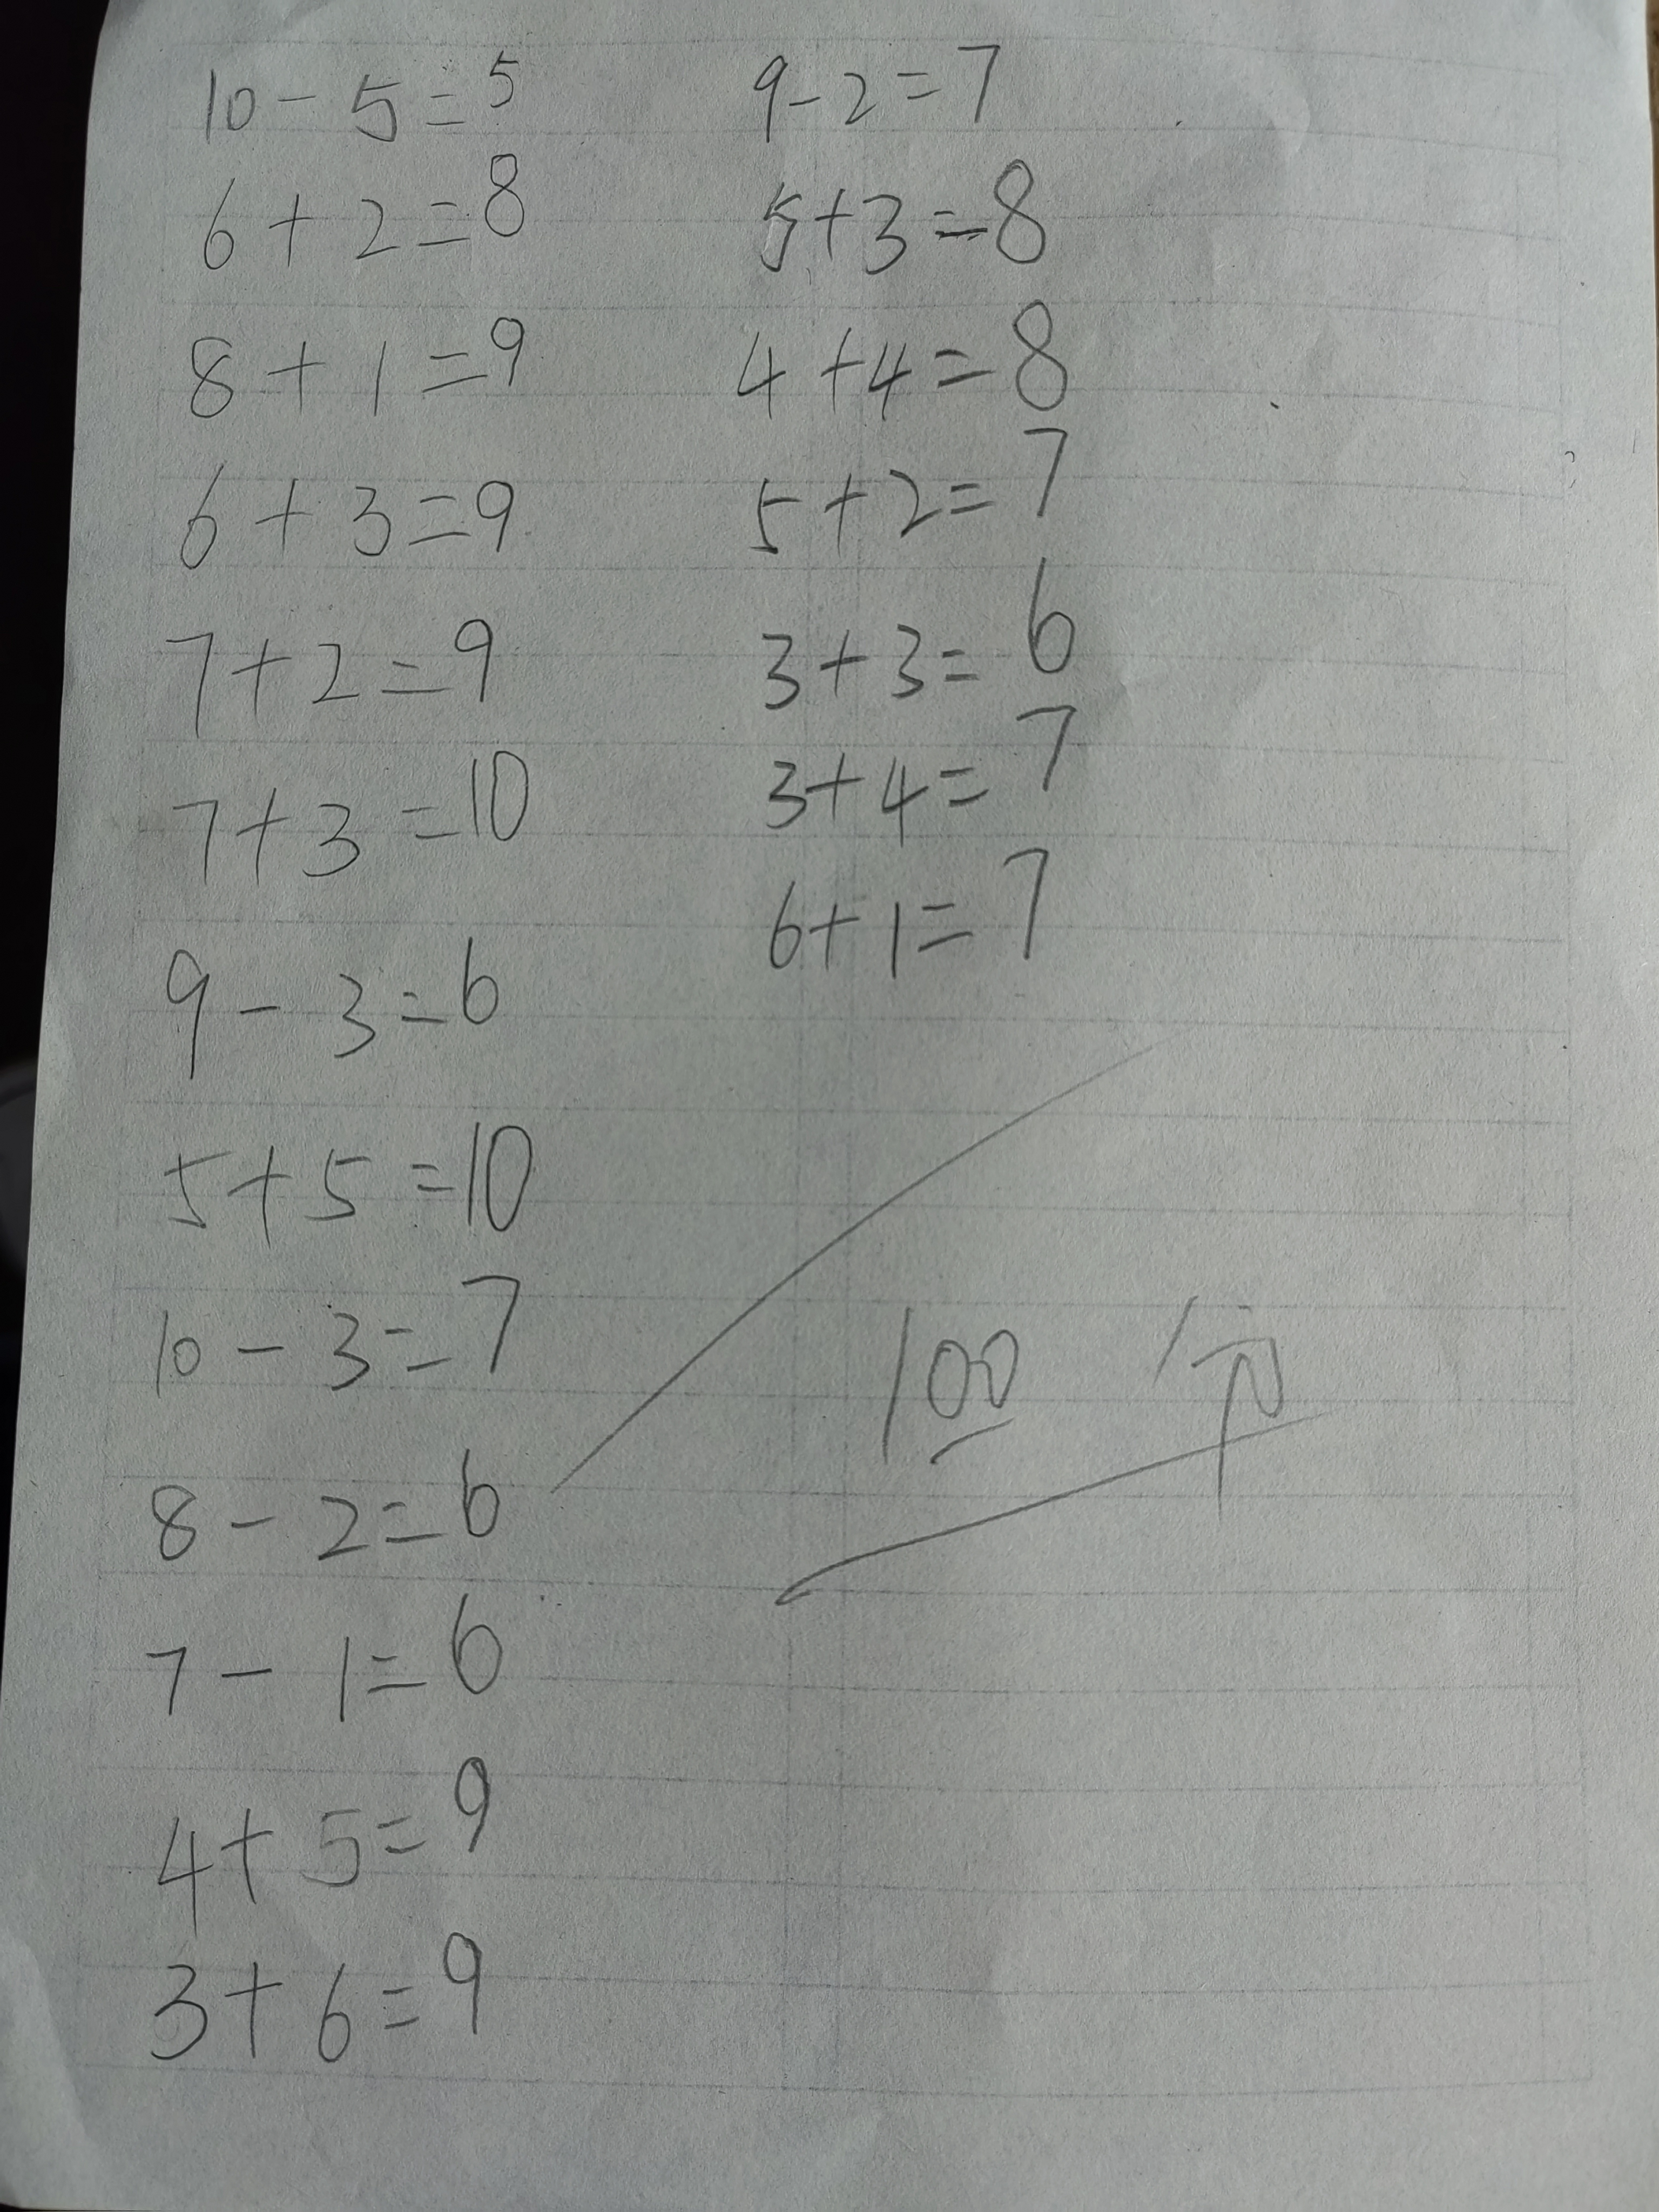 10-5=5
6+2=8
8+1=9
6+3=9
7+2=9
7+3=10
9-3=6
5+5=10
10-3=7
8-2=6
7-1=6
4+5=9
3+6=9
9-2=7
5+3=8
4+4=8
5+2=7
3+3=6
3+4=7
6+1=7
100